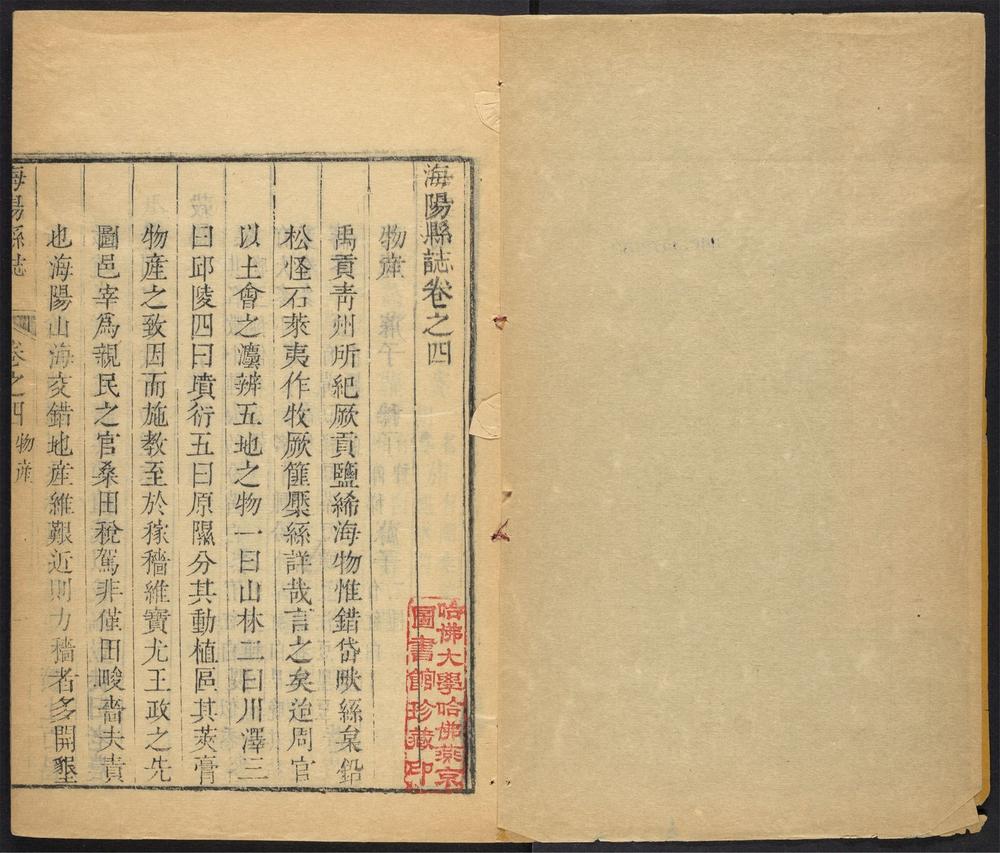 海陽縣誌卷之四
物產
禹貢靑州所紀厥貢鹽絺海物惟錯岱畎絲枲鉛
松怪石萊夷作牧厥篚檿絲詳哉言之矣迨周官
以土會之灋辨五地之物一曰山林二曰川澤三
曰邱陵四曰墳衍五曰原隰分其動植區其莢膏
物產之致因而施教至於稼穡維寶尤王政之先
圖邑宰爲親民之官桑田稅駕非僅田畯嗇夫責
也海陽山海交錯地產維艱近則力穡者多開墾
海陽縣誌 卷之四 物產
哈佛大學哈佛燕京
圖書館珍藏印